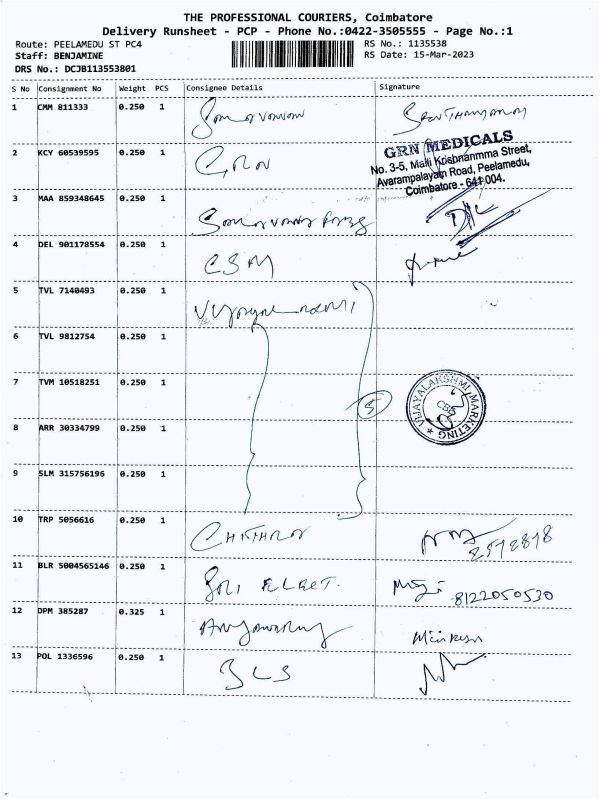 THE PROFESSIONAL COURIERS, Coimbatore
Delivery Runsheet - PCP - Phone No.:0422-3505555 - Page No.:1
Route: PEELAMEDU ST PC4
RS No.: 1135538
Staff: BENJAMINE
RS Date: 15-Mar-2023
DRS No.: DCJB113553801
S No Consignment No Weight PCS Consignee Details Signature
1 CMM 811333 0.250 1
2 KCY 60539595 0.250 1 GRN
GRN MEDICALS
No. 3-5, Malli Krishnanmma Street,
Avarampalayam Road, Peelamedu,
Coimbatore - 641 004.
3 MAA 859348645 0.250 1
4 DEL 901178554 0.250 1 CSM
5 TVL 7140493 0.250 1
6 TVL 9812754 0.250 1
7 TVM 10518251 0.250 1
5
VIJAYALAKSHMI MARKETING
CBE
8 ARR 30334799 0.250 1
9 SLM 315756196 0.250 1
10 TRP 5056616 0.250 1 CHITHRA
11 BLR 5004565146 0.250 1 SRI ELEET. 8122050530
12 DPM 385287 0.325 1
13 POL 1336596 0.250 1 BLS